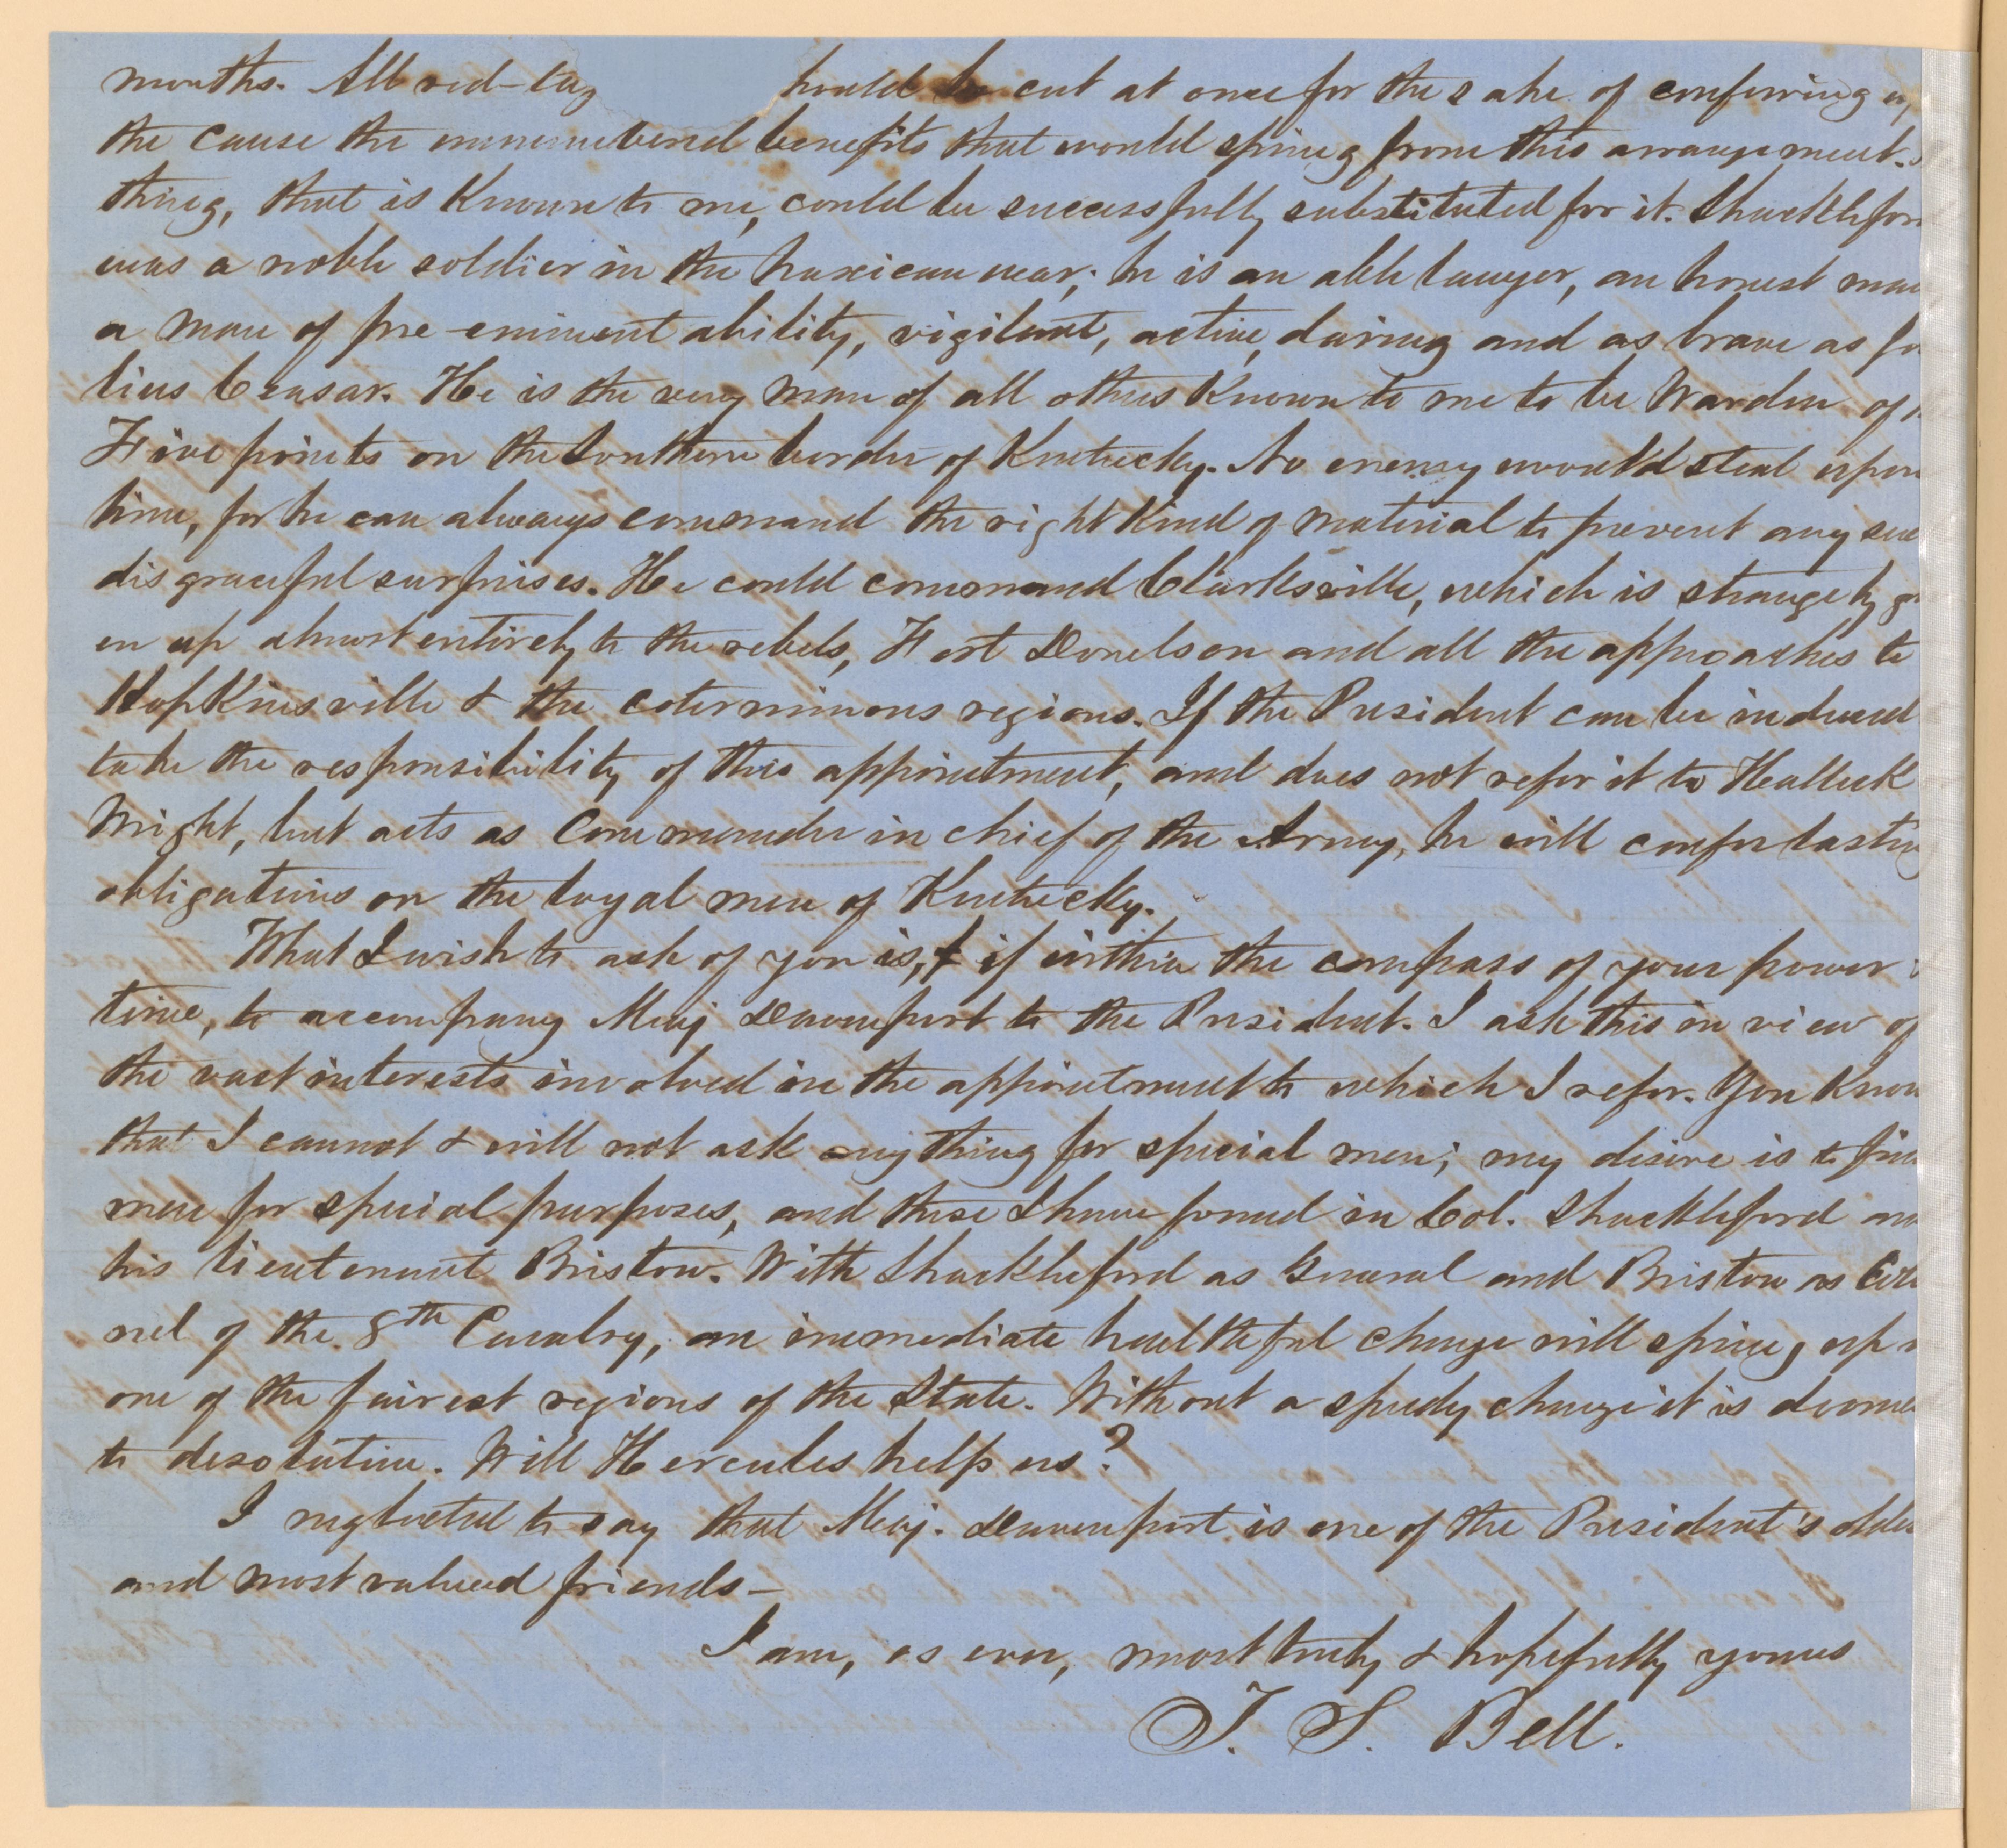 months. All red-tag hould be cut at once for the sake of conferring u
the cause the unnumbered benefits that would spring from this arrangement.
thing, that is Known to me, could be successfully substituted for it. Shacklefor
was a noble soldier in the Mexican war; he is an able lawyer, an honest man
a man of pre-eminent ability, vigilant, active, daring and as brave as Ju
lius Ceasar. He is the very man of all others Known to me to be Warden of
Five points on the Southern border of Kentucky. No enemy would steal upon
him, for he can always command the right Kind of material to prevent any suc
disgraceful surprises. He could command Clarksville, which is strangely g
en up almost entirely to the rebels, Fort Donelson and all the approaches to
HopKinsville & the coterminous regions. If the President can be induced
take the responsibility of this appointment, and does not refer it to Halleck
Wright, but acts as Commander in chief of the Army, he will confer lasting
obligations on the loyal men of Kentucky.
What I wish to ask of you is, if within the compass of your power
time, to accompany Maj Davenport to the President. I ask this in view of
the vast interests involved in the appointment to which I refer. You Know
that I cannot & will not ask anything for special men; my desire is to fin
men for special purposes, and these I have found in Col. Shackleford an
his lieutenant Bristow. With Shackleford as General and Bristow as Colo
nel of the 8th Cavalry, an immediate healthful change will spring up
one of the fairest regions of the State. Without a speedy change it is doome
to desolation. Will Hercules help us?
I neglected to say that Maj. Davenport is one of the President's oldes
and most valued friends—
I am, as ever, most truly & hopefully yours
T. S. Bell.